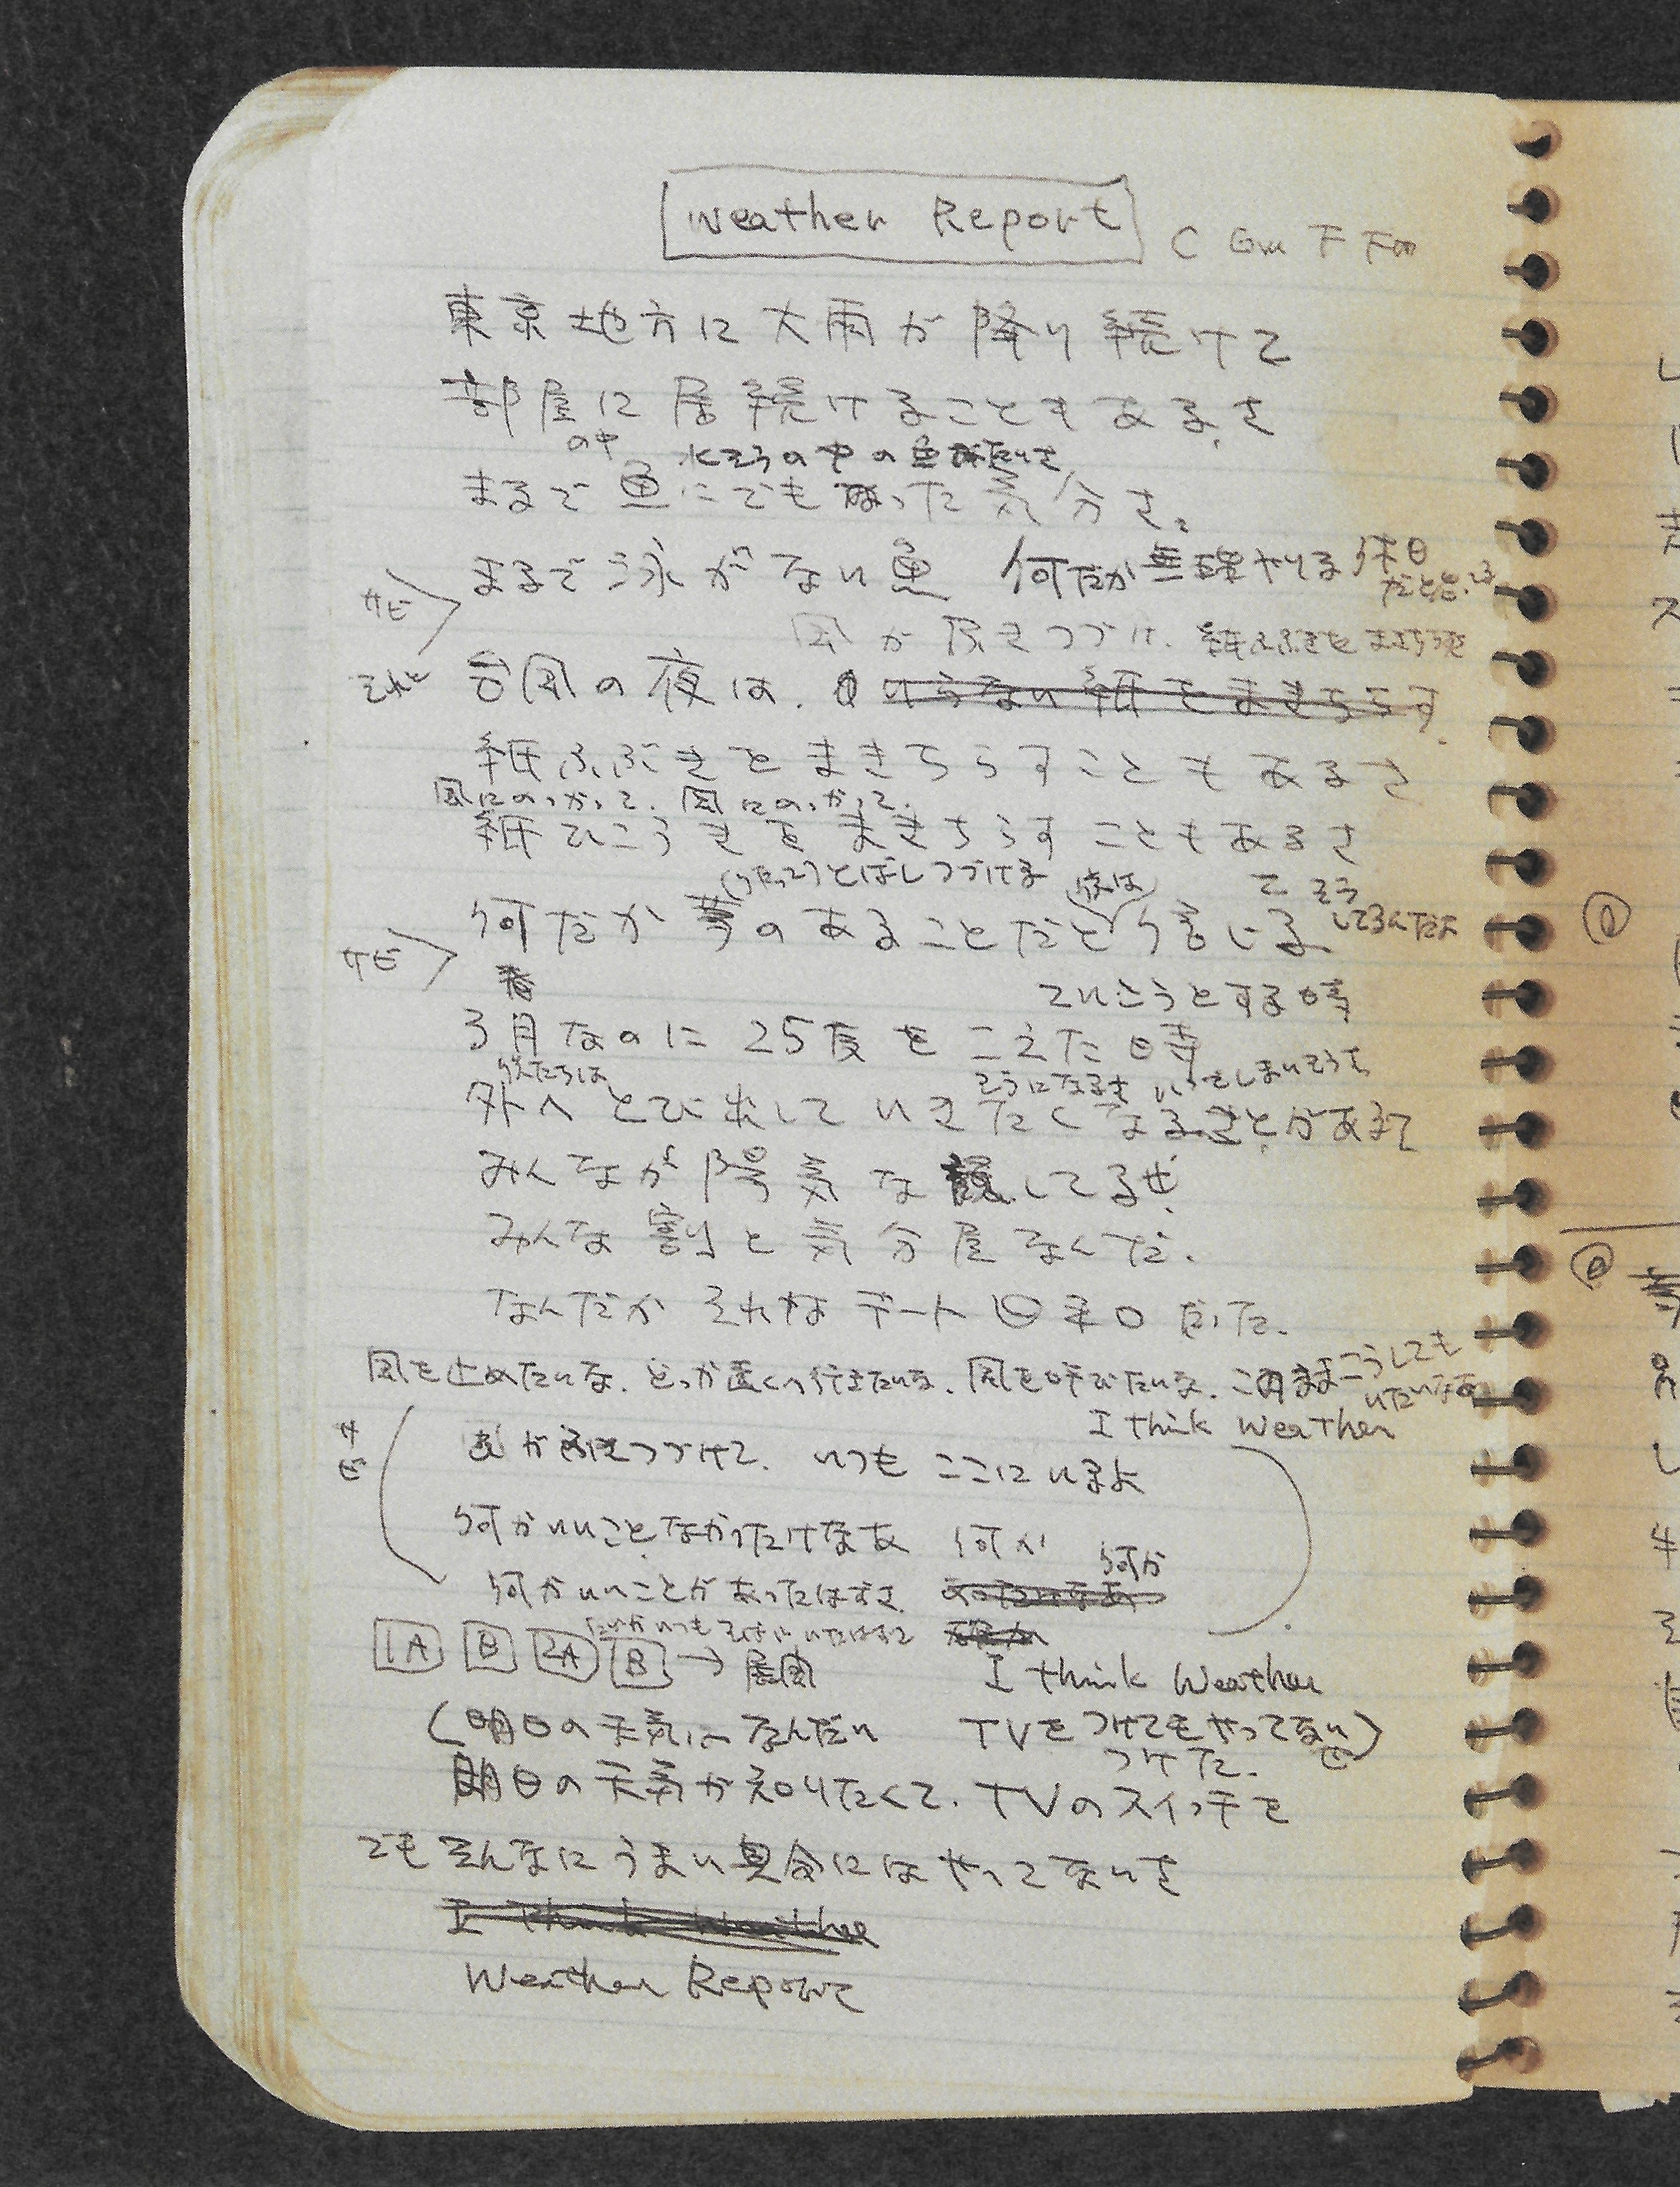 Weather Report
C Gm F Fm
東京地方に大雨が降り続けて
部屋に居続けることもあるさ
の中 水そうの中の魚みたいさ
まるで魚にでもなった気分さ。
サビ
まるで泳がない魚 何だか無理やりな休日
だと思う
風が拭きつづけ. 紙ふぶきをまきちらす
それと 台風の夜は. いらない紙をまきちらす
紙ふぶきをまきちらすこともあるさ
風にのっかって. 風にのっかって.
紙ひこうきをまきちらすこともあるさ
とばしつづける
て そう
何だか夢のあることだと信じる してるんだよ
サビ
ていこうとする時
3月なのに25度をこえた時
そうになるさ いってしまいそうで
外へとび出していきたくなることがあるて
みんなが陽気な顔してるぜ.
みんな割と気分屋なんだ.
なんだか それなデート日和だった.
風を止めたいな. どっか遠くへ行きたいな. 風を呼びたいな. このままこうしても
いたいなあ
I think Weather
サビ
つづけて. いつも ここにいるよ
何かいいことなかったけなあ 何か
何か
何かいいことがあったはずさ.
1A B 2A B → 展開
I think Weather
(明日の天気はなんだい TVをつけてもやってない)
つけた. ぜ
明日の天気が知りたくて. TVのスイッチを
でもそんなにうまい具合にはやってないさ
I think Weather
Weather Report